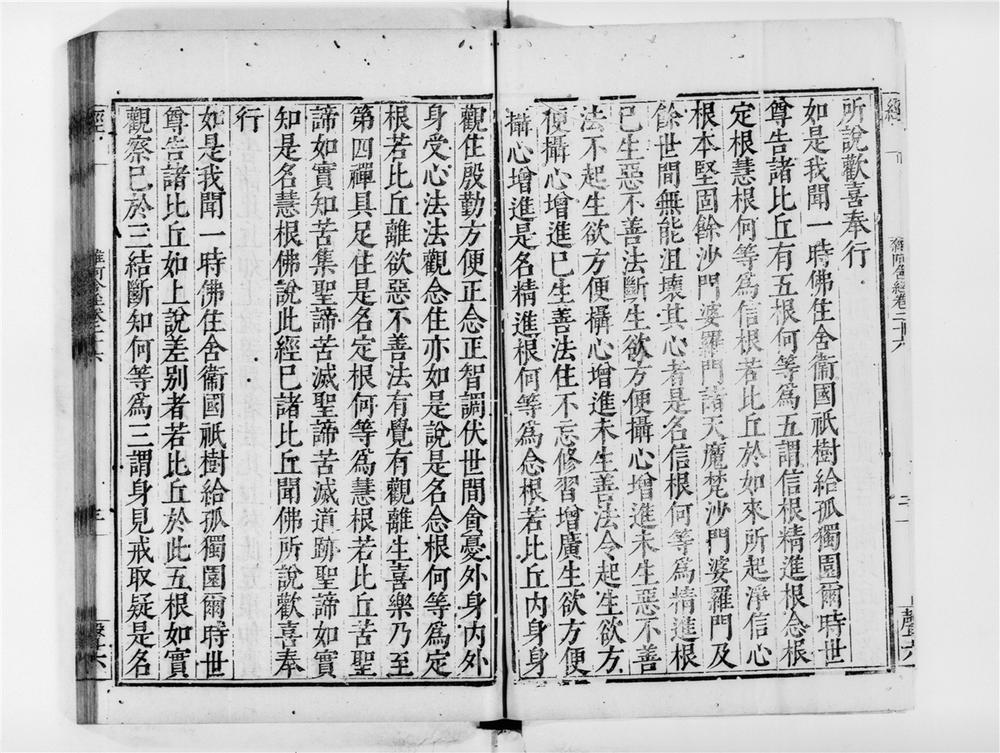 所說歡喜奉行
如是我聞一時佛住舍衞國祇樹給孤獨園爾時世
尊告諸比丘有五根何等爲五謂信根精進根念根
定根慧根何等爲信根若比丘於如來所起淨信心
根本堅固餘沙門婆羅門諸天魔梵沙門婆羅門及
餘世間無能沮壞其心者是名信根何等爲精進根
已生惡不善法斷生欲方便攝心增進未生惡不善
法不起生欲方便攝心增進未生善法令起生欲方
便攝心增進已生善法住不忘修習增廣生欲方便
攝心增進是名精進根何等爲念根若比丘內身身
觀住殷勤方便正念正智調伏世間貪憂外身內外
身受心法法觀念住亦如是說是名念根何等爲定
根若比丘離欲惡不善法有覺有觀離生喜樂乃至
第四禪具足住是名定根何等爲慧根若比丘苦聖
諦如實知苦集聖諦苦滅聖諦苦滅道跡聖諦如實
知是名慧根佛說此經已諸比丘聞佛所說歡喜奉
行
如是我聞一時佛住舍衞國祇樹給孤獨園爾時世
尊告諸比丘如上說差別者若比丘於此五根如實
觀察已於三結斷知何等爲三謂身見戒取疑是名